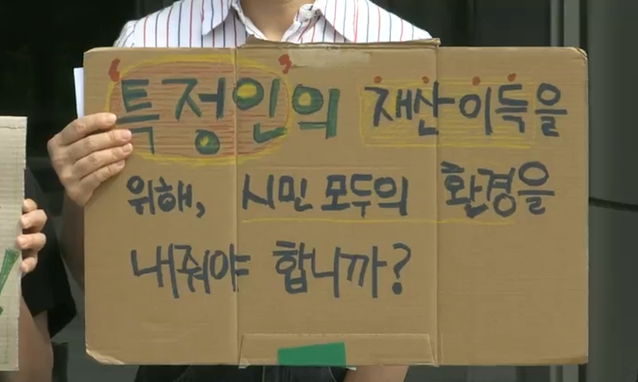 '특정인'의 재산이득을
위해, 시민 모두의 환경을
내줘야 합니까?